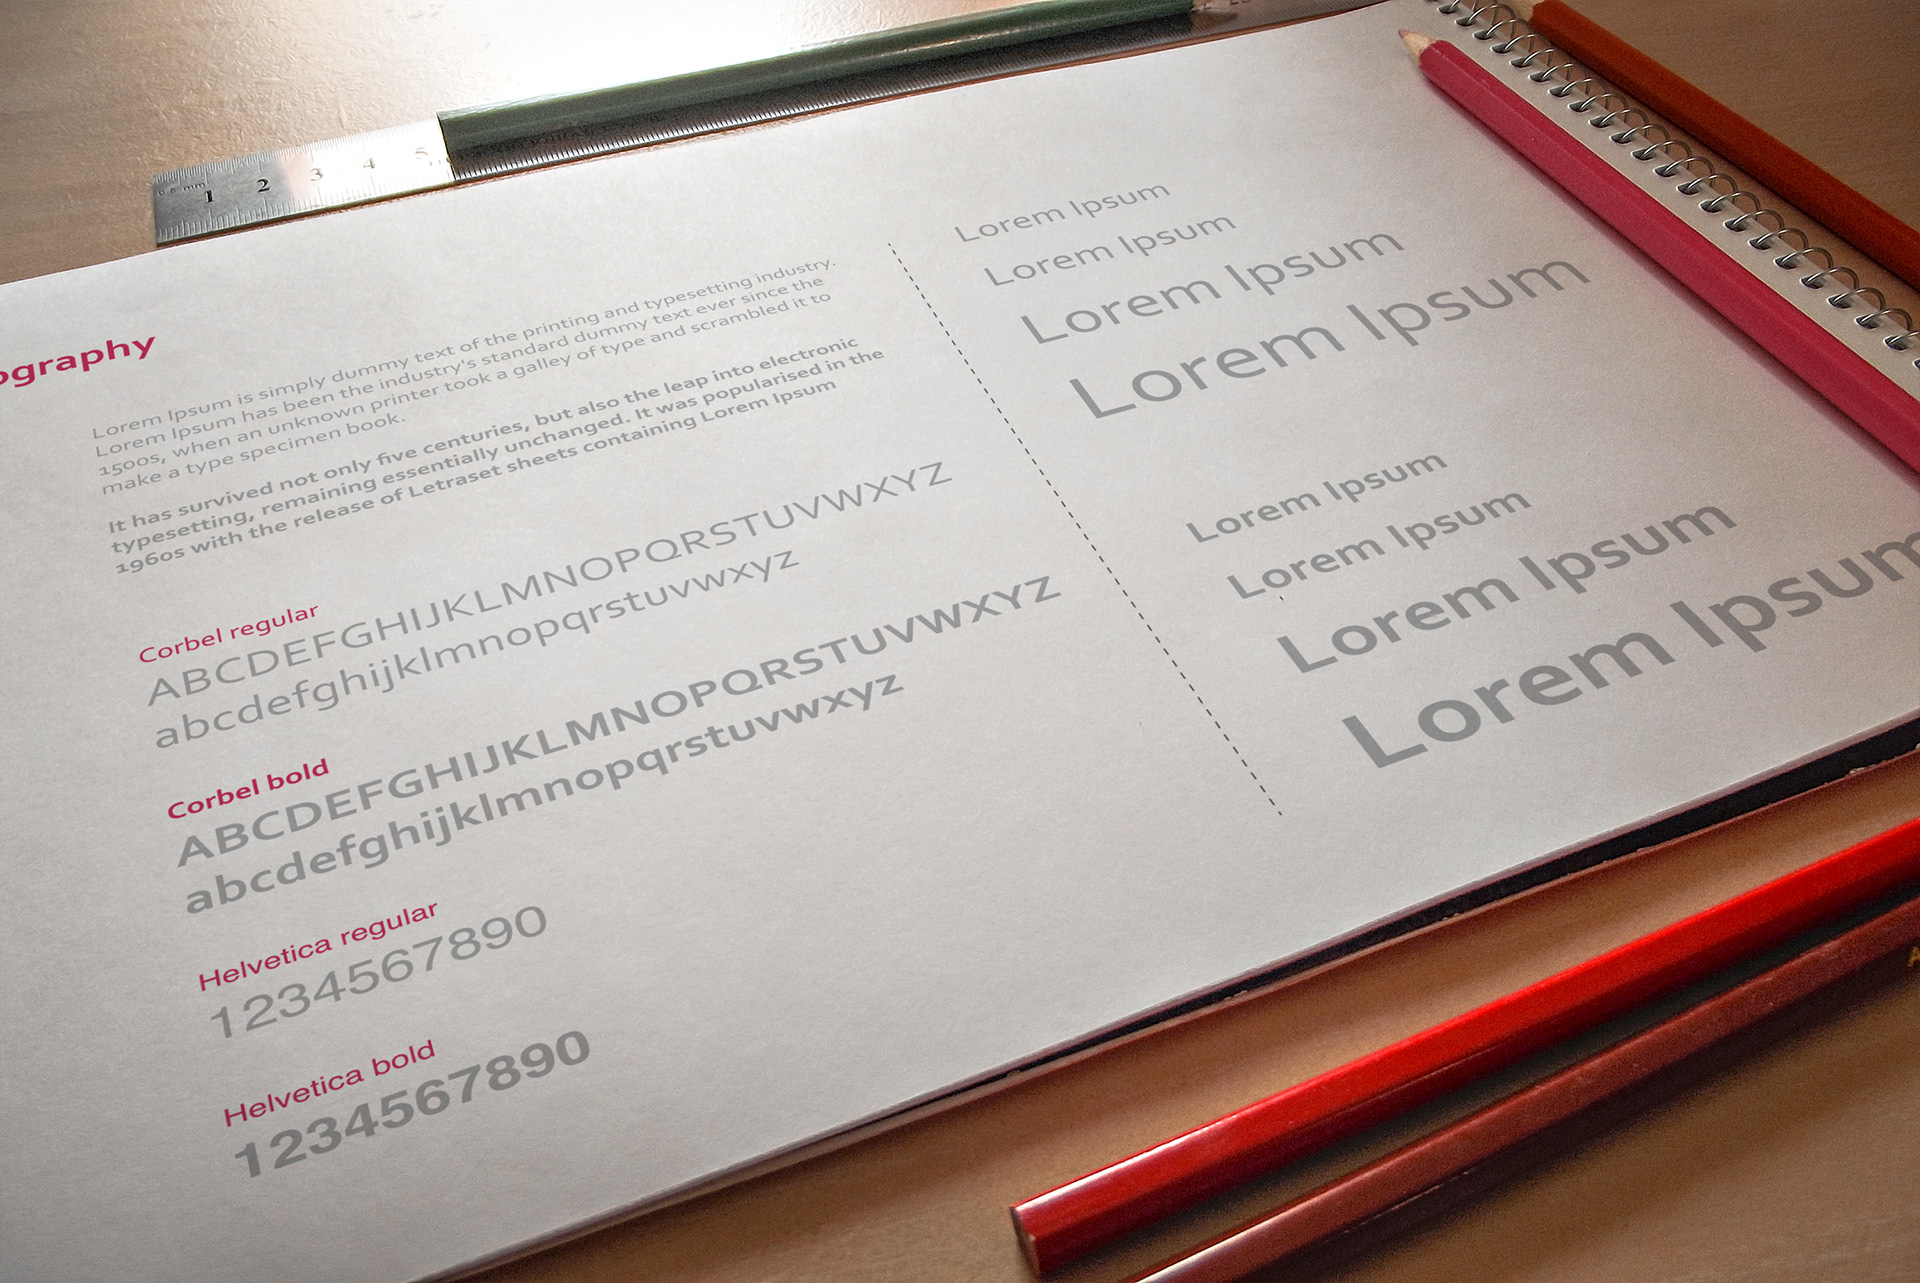 1 2 3 4 5
ography
Lorem Ipsum is simply dummy text of the printing and typesetting industry.
Lorem Ipsum has been the industry's standard dummy text ever since the
1500s, when an unknown printer took a galley of type and scrambled it to
make a type specimen book.
It has survived not only five centuries, but also the leap into electronic
typesetting, remaining essentially unchanged. It was popularised in the
1960s with the release of Letraset sheets containing Lorem Ipsum
Corbel regular
ABCDEFGHIJKLMNOPQRSTUVWXYZ
abcdefghijklmnopqrstuvwxyz
Corbel bold
ABCDEFGHIJKLMNOPQRSTUVWXYZ
abcdefghijklmnopqrstuvwxyz
Helvetica regular
1234567890
Helvetica bold
1234567890
Lorem Ipsum
Lorem Ipsum
Lorem Ipsum
Lorem Ipsum
Lorem Ipsum
Lorem Ipsum
Lorem Ipsum
Lorem Ipsum